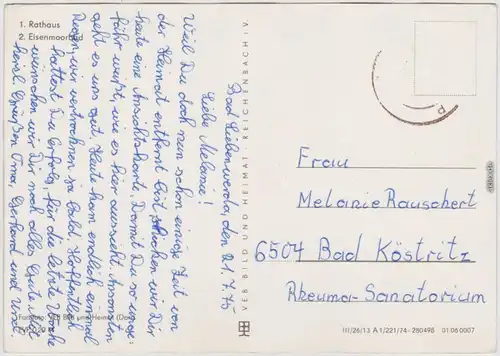 1. Rathaus
2. Eisenmoorbad
Bad Liebenwerda, den 21.7.75
Liebe Melanie!
Weil Du doch nun schon einige Zeit von
der Heimat entfernt bist, schicken wir Dir
heute eine Ansichtskarte. Damit Du so unge-
fähr weißt, wie es hier aussieht. Ansonsten
geht es uns gut. Heute kam endlich einmal
Regen, wir vertrockneten ja bald. Hoffentlich
hattest Du Erfolg, für die letzte Woche
wünschen wir Dir noch alles Gute. Selbst
herzl. Grüßen Oma, Gerhard und
VEB BILD UND HEIMAT REICHENBACH i. V.
Frau
Melanie Rauschert
6504 Bad Köstritz
Rheuma-Sanatorium
Farbfoto: VEB Bild und Heimat
EVP 0,20 M
III/26/13 A 1/221/74 - 280498 01 06 0007